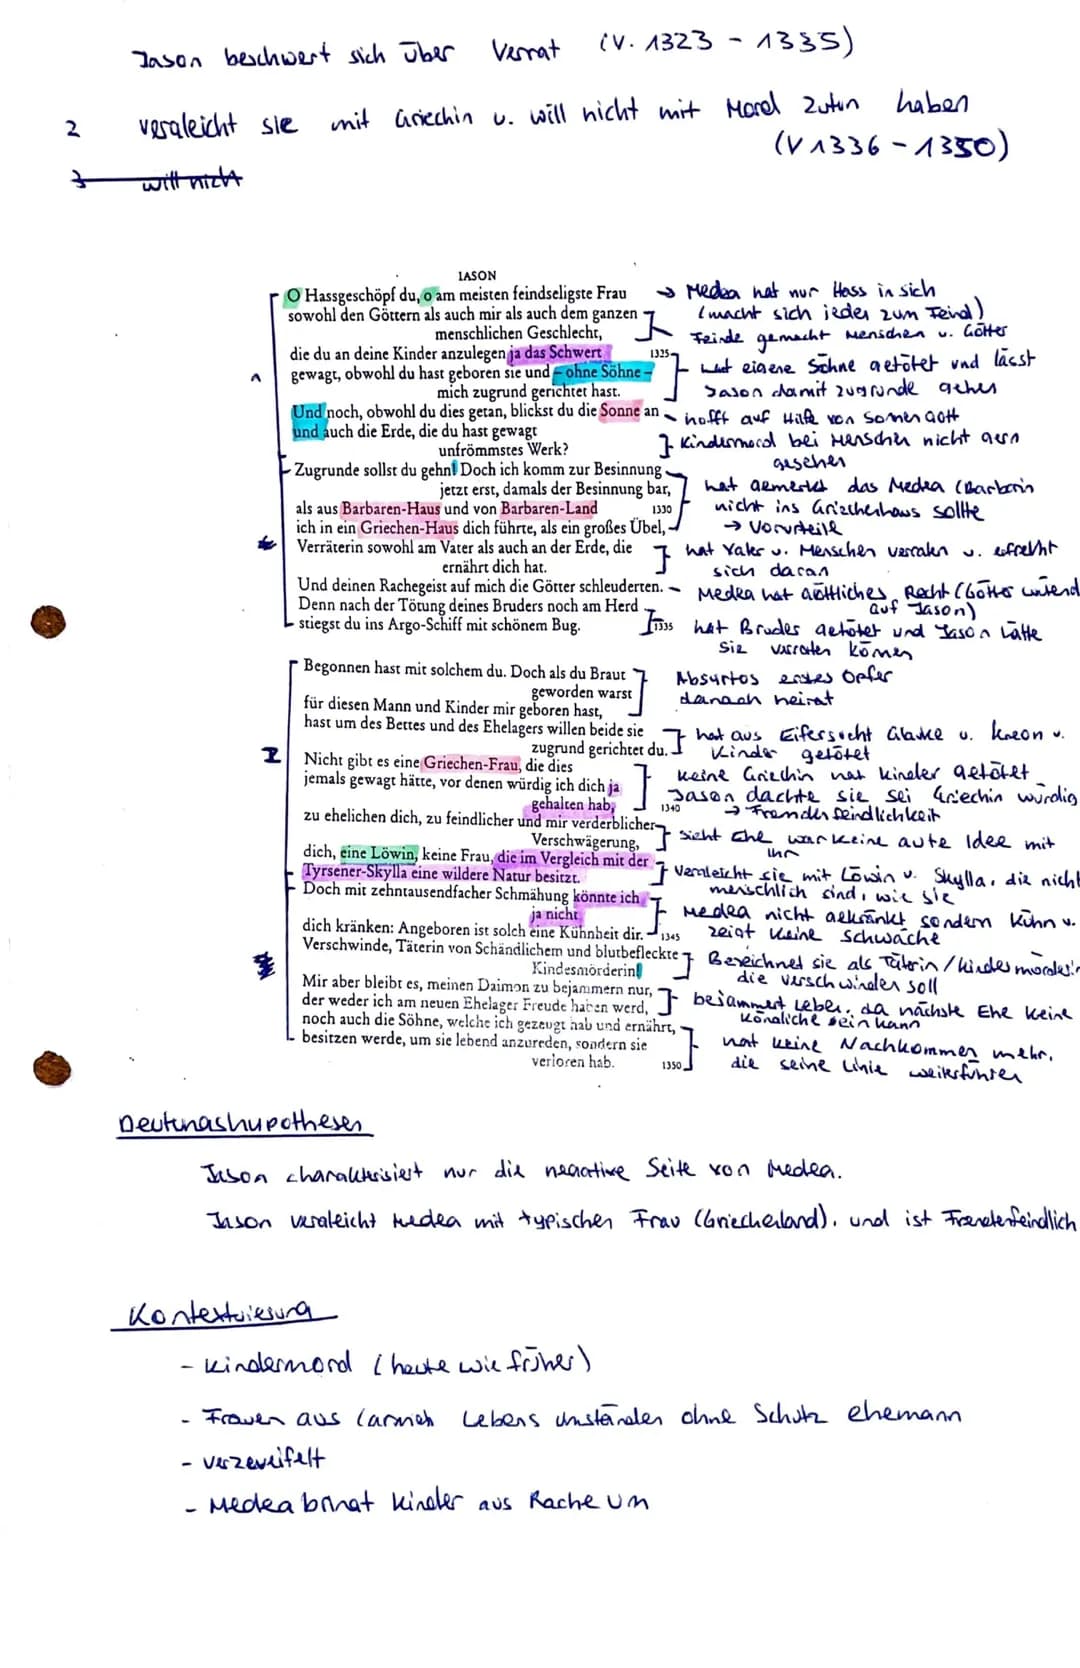 Jason beschwert sich über Verrat (V. 1323 - 1335)
2 vergleicht sie mit Griechin u. will nicht mit Mord zutun haben
(V 1336 - 1350)
3 will nicht
IASON
O Hassgeschöpf du, o am meisten feindseligste Frau → Medea hat nur Hass in sich
sowohl den Göttern als auch mir als auch dem ganzen (macht sich jeder zum Feind)
menschlichen Geschlecht, Feinde gemacht Menschen u. Götter
die du an deine Kinder anzulegen ja das Schwert 1325 hat eigene Söhne getötet und lässt
1 gewagt, obwohl du hast geboren sie und – ohne Söhne –
mich zugrund gerichtet hast. Jason damit zugrunde gehen
Und noch, obwohl du dies getan, blickst du die Sonne an hofft auf Hilfe von Sonnengott
und auch die Erde, die du hast gewagt
unfrömmstes Werk? Kindermord bei Menschen nicht gern gesehen
Zugrunde sollst du gehn! Doch ich komm zur Besinnung
jetzt erst, damals der Besinnung bar, hat gemerkt das Medea (Barbarin
als aus Barbaren-Haus und von Barbaren-Land 1330 nicht ins Griechenhaus sollte
ich in ein Griechen-Haus dich führte, als ein großes Übel, → Vorurteile
Verräterin sowohl am Vater als auch an der Erde, die hat Vater u. Menschen verraten u. erfreut
ernährt dich hat. sich daran
Und deinen Rachegeist auf mich die Götter schleuderten. – Medea hat göttliches Recht (Götter wütend
auf Jason)
Denn nach der Tötung deines Bruders noch am Herd
stiegst du ins Argo-Schiff mit schönem Bug. 1335 hat Bruder getötet und Jason hätte
sie verraten können
Begonnen hast mit solchem du. Doch als du Braut Absurtos erstes Opfer
geworden warst danach heirat
für diesen Mann und Kinder mir geboren hast,
hast um des Bettes und des Ehelagers willen beide sie hat aus Eifersucht Glauke u. Kreon u.
zugrund gerichtet du. Kinder getötet
2 Nicht gibt es eine Griechen-Frau, die dies keine Griechin hat kinder getötet
jemals gewagt hätte, vor denen würdig ich dich ja Jason dachte sie sei Griechin würdig
gehalten hab, 1340 → Fremdenfeindlichkeit
zu ehelichen dich, zu feindlicher und mir verderblicher
Verschwägerung, sieht Ehe war keine gute Idee mit ihr
dich, eine Löwin, keine Frau, die im Vergleich mit der vergleicht sie mit Löwin u. Skylla, die nicht
Tyrsener-Skylla eine wildere Natur besitzt. menschlich sind, wie sie
Doch mit zehntausendfacher Schmähung könnte ich
ja nicht Medea nicht gekränkt sondern kühn u.
dich kränken: Angeboren ist solch eine Kühnheit dir. 1345 zeigt keine Schwäche
Verschwinde, Täterin von Schändlichem und blutbefleckte Bezeichnet sie als Täterin/Kindesmörderin
Kindesmörderin! die verschwinden soll
Mir aber bleibt es, meinen Daimon zu bejammern nur,
der weder ich am neuen Ehelager Freude haben werd, bejammert Leben, da nächste Ehe keine
königliche sein kann
noch auch die Söhne, welche ich gezeugt hab und ernährt,
besitzen werde, um sie lebend anzureden, sondern sie hat keine Nachkommen mehr,
verloren hab. 1350 die seine Linie weiterführen
Deutungshypothesen
Jason charakterisiert nur die negative Seite von Medea.
Jason vergleicht Medea mit typischen Frau (Griechenland), und ist Fremdenfeindlich
Kontextuierung
- Kindermord (heute wie früher)
- Frauen aus (armen Lebens umständen ohne Schutz ehemann
- verzweifelt
- Medea bringt kinder aus Rache um